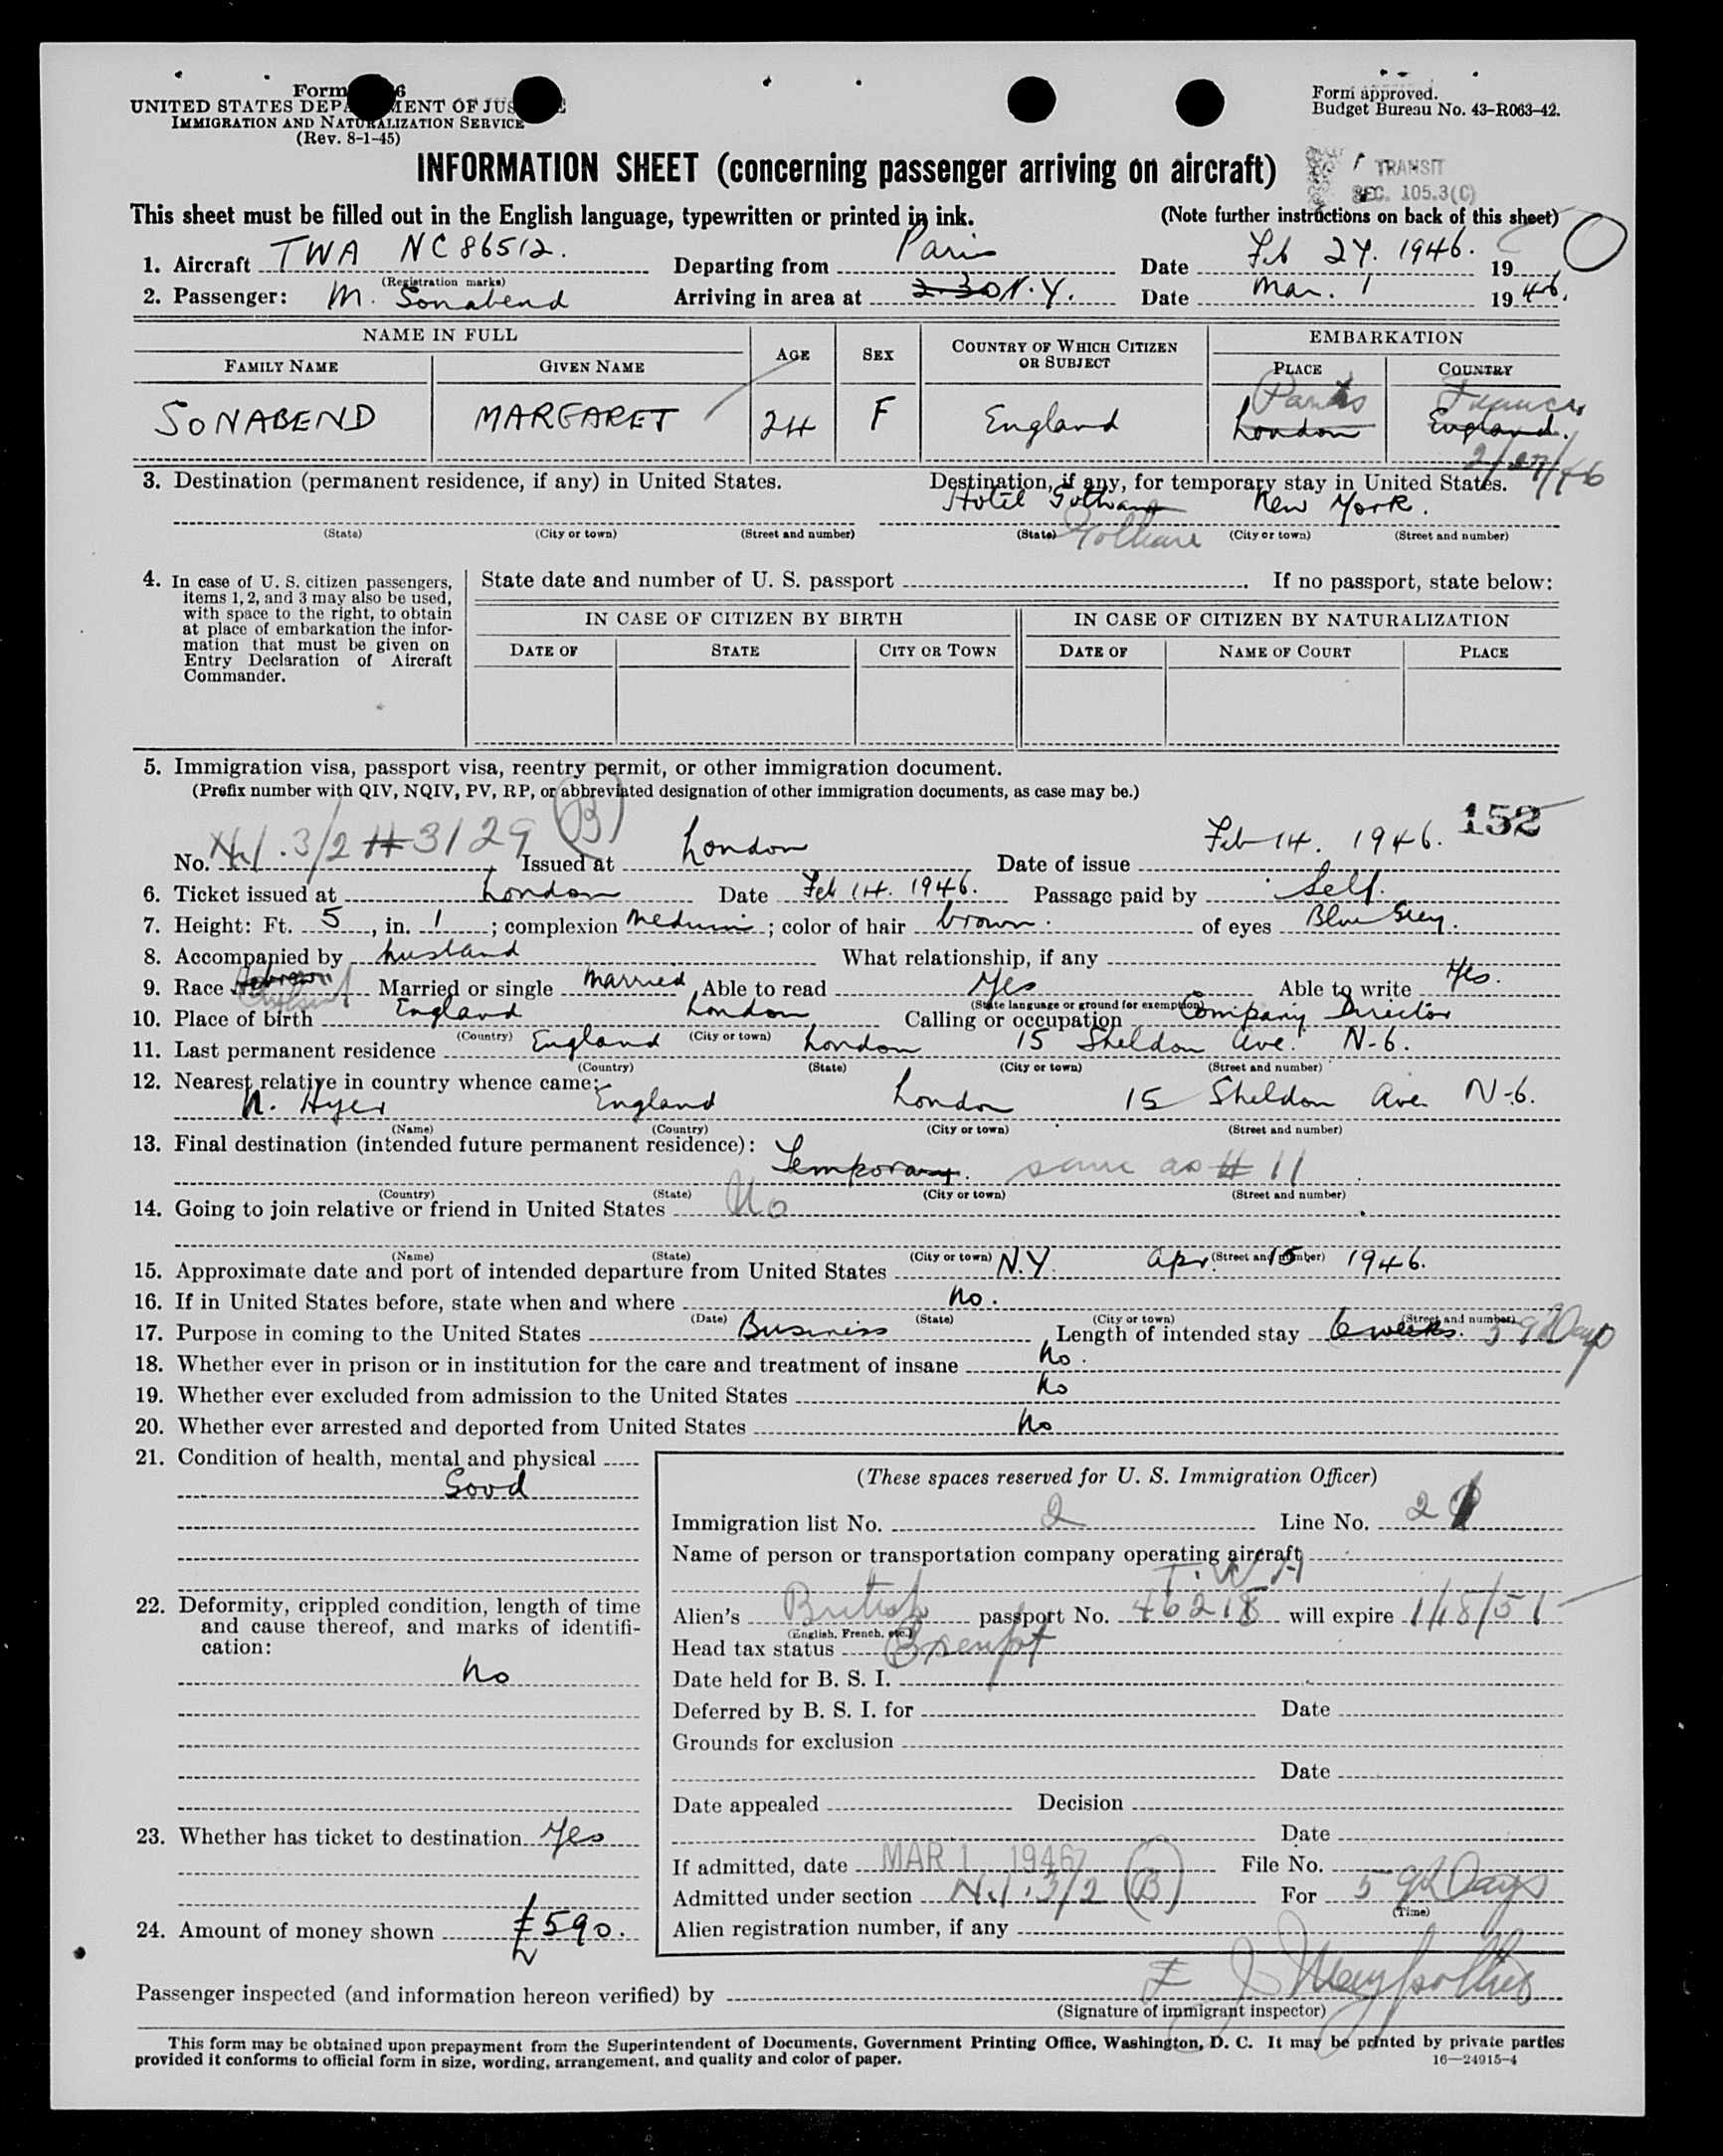 Form 6
UNITED STATES DEPARTMENT OF JUSTICE
IMMIGRATION AND NATURALIZATION SERVICE
(Rev. 8-1-45)
Form approved.
Budget Bureau No. 43-R063-42.
INFORMATION SHEET (concerning passenger arriving on aircraft)
TRANSIT
SEC. 105.3(C)
This sheet must be filled out in the English language, typewritten or printed in ink. (Note further instructions on back of this sheet)
1. Aircraft TWA NC86512. Departing from Paris Date Feb 27. 1946. 19
(Registration marks)
2. Passenger: M. Sonabend Arriving in area at 2.30 N.Y. Date Mar. 1 1946.
NAME IN FULL AGE SEX COUNTRY OF WHICH CITIZEN OR SUBJECT EMBARKATION
FAMILY NAME GIVEN NAME PLACE COUNTRY
Paris France
SONABEND MARGARET 24 F England London England.
2/27/46
3. Destination (permanent residence, if any) in United States. Destination, if any, for temporary stay in United States.
Hotel Gotham New York.
(State) (City or town) (Street and number) (State) (City or town) (Street and number)
4. In case of U. S. citizen passengers, items 1, 2, and 3 may also be used, with space to the right, to obtain at place of embarkation the information that must be given on Entry Declaration of Aircraft Commander.
State date and number of U. S. passport . If no passport, state below:
IN CASE OF CITIZEN BY BIRTH IN CASE OF CITIZEN BY NATURALIZATION
DATE OF STATE CITY OR TOWN DATE OF NAME OF COURT PLACE
5. Immigration visa, passport visa, reentry permit, or other immigration document.
(Prefix number with QIV, NQIV, PV, RP, or abbreviated designation of other immigration documents, as case may be.)
152
No. 3/2 #3129 (B) Issued at London Date of issue Feb 14. 1946.
6. Ticket issued at London Date Feb 14. 1946. Passage paid by Self.
7. Height: Ft. 5, in. 1; complexion Medium; color of hair brown. of eyes Blue Grey.
8. Accompanied by husband What relationship, if any
9. Race Hebrew English Married or single Married Able to read Yes Able to write Yes.
(State language or ground for exemption)
10. Place of birth England London Calling or occupation Company Director
(Country) (City or town)
11. Last permanent residence England London 15 Sheldon Ave. N-6.
(Country) (State) (City or town) (Street and number)
12. Nearest relative in country whence came:
N. Hyer England London 15 Sheldon Ave N-6.
(Name) (Country) (City or town) (Street and number)
13. Final destination (intended future permanent residence):
Temporary. same as # 11
(Country) (State) (City or town) (Street and number)
14. Going to join relative or friend in United States No
(Name) (State) (City or town) (Street and number)
15. Approximate date and port of intended departure from United States N.Y. Apr. 15 1946.
16. If in United States before, state when and where no.
(Date) (State) (City or town) (Street and number)
17. Purpose in coming to the United States Business Length of intended stay 6 weeks. 59 Days
18. Whether ever in prison or in institution for the care and treatment of insane No.
19. Whether ever excluded from admission to the United States No
20. Whether ever arrested and deported from United States No
21. Condition of health, mental and physical
Good
22. Deformity, crippled condition, length of time and cause thereof, and marks of identification:
No
23. Whether has ticket to destination Yes
24. Amount of money shown £590.
(These spaces reserved for U. S. Immigration Officer)
Immigration list No. 2 Line No. 2
Name of person or transportation company operating aircraft
T.W.A
Alien's British passport No. 46218 will expire 1/18/51
(English, French, etc.)
Head tax status Exempt
Date held for B. S. I.
Deferred by B. S. I. for Date
Grounds for exclusion
Date
Date appealed Decision
Date
If admitted, date MAR 1 1946 File No.
Admitted under section 3/2 (B) For 59 Days
(Time)
Alien registration number, if any
Passenger inspected (and information hereon verified) by
(Signature of immigrant inspector)
This form may be obtained upon prepayment from the Superintendent of Documents, Government Printing Office, Washington, D. C. It may be printed by private parties
provided it conforms to official form in size, wording, arrangement, and quality and color of paper.
16—24915-4